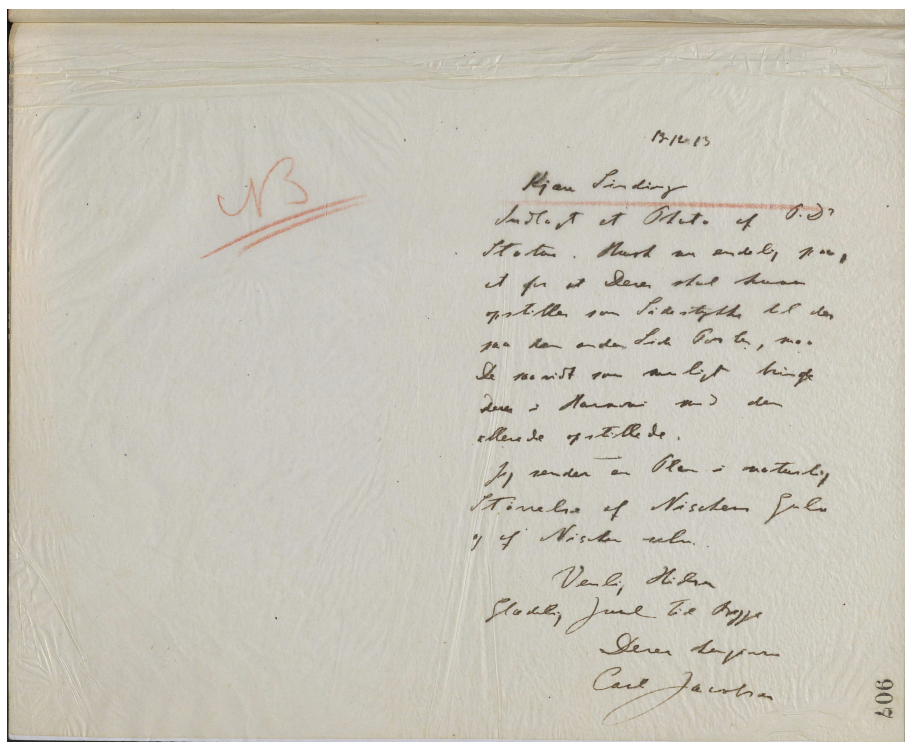 NB
13-12-13
Kjære Sinding
Indlagt et Photo af P. D's
Statue. Husk nu endelig paa,
at for at Deres skal kunne
opstilles som Sidestykke til den
paa den anden Side Porten, maa
De saavidt som muligt bringe
Deres i Harmoni med den
allerede opstillede.
Jeg sender en Plan i naturlig
Størrelse af Nischens Gulv
og af Nischen selv.
Venlig Hilsen
Glædelig Juul til Begge
Deres hengivne
Carl Jacobsen
907